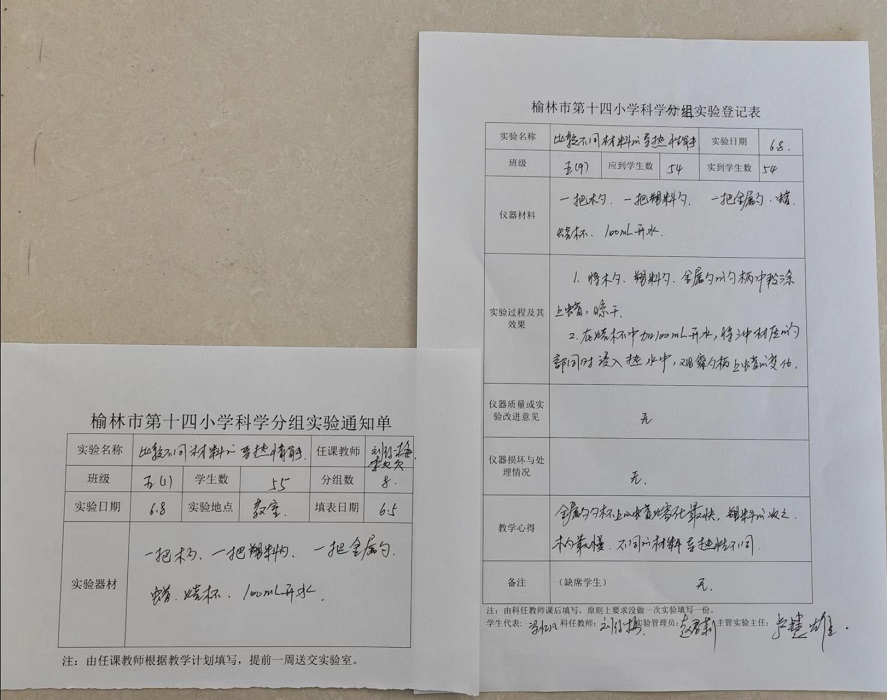 榆林市第十四小学科学分组实验通知单
实验名称 比较不同材料的导热性能 任课教师
班级 五(1) 学生数 55 分组数 8.
实验日期 6.8 实验地点 教室. 填表日期 6.5
实验器材
一把木勺、一把塑料勺、一把金属勺、
蜡、烧杯、100mL开水.
注：由任课教师根据教学计划填写，提前一周送交实验室。
榆林市第十四小学科学分组实验登记表
实验名称 比较不同材料的导热性能 实验日期 6.8.
班级 五(9) 应到学生数 54 实到学生数 54
仪器材料
一把木勺、一把塑料勺、一把金属勺、蜡、
烧杯、100mL开水.
实验过程及其效果
1. 将木勺、塑料勺、金属勺的勺柄中粘涂
上蜡，晾干.
2. 在烧杯中加100mL开水，将
部同时浸入热水中，观察勺柄上蜡的变化.
仪器质量或实验改进意见 无
仪器损坏与处理情况 无.
教学心得
金属勺 上的蜡 化最快，塑料的次之.
木勺最慢. 不同的材料导热性不同.
备注 (缺席学生) 无.
注：由科任教师课后填写，原则上要求没做一次实验填写一份。
学生代表: 科任教师: 实验管理员: 主管实验主任: